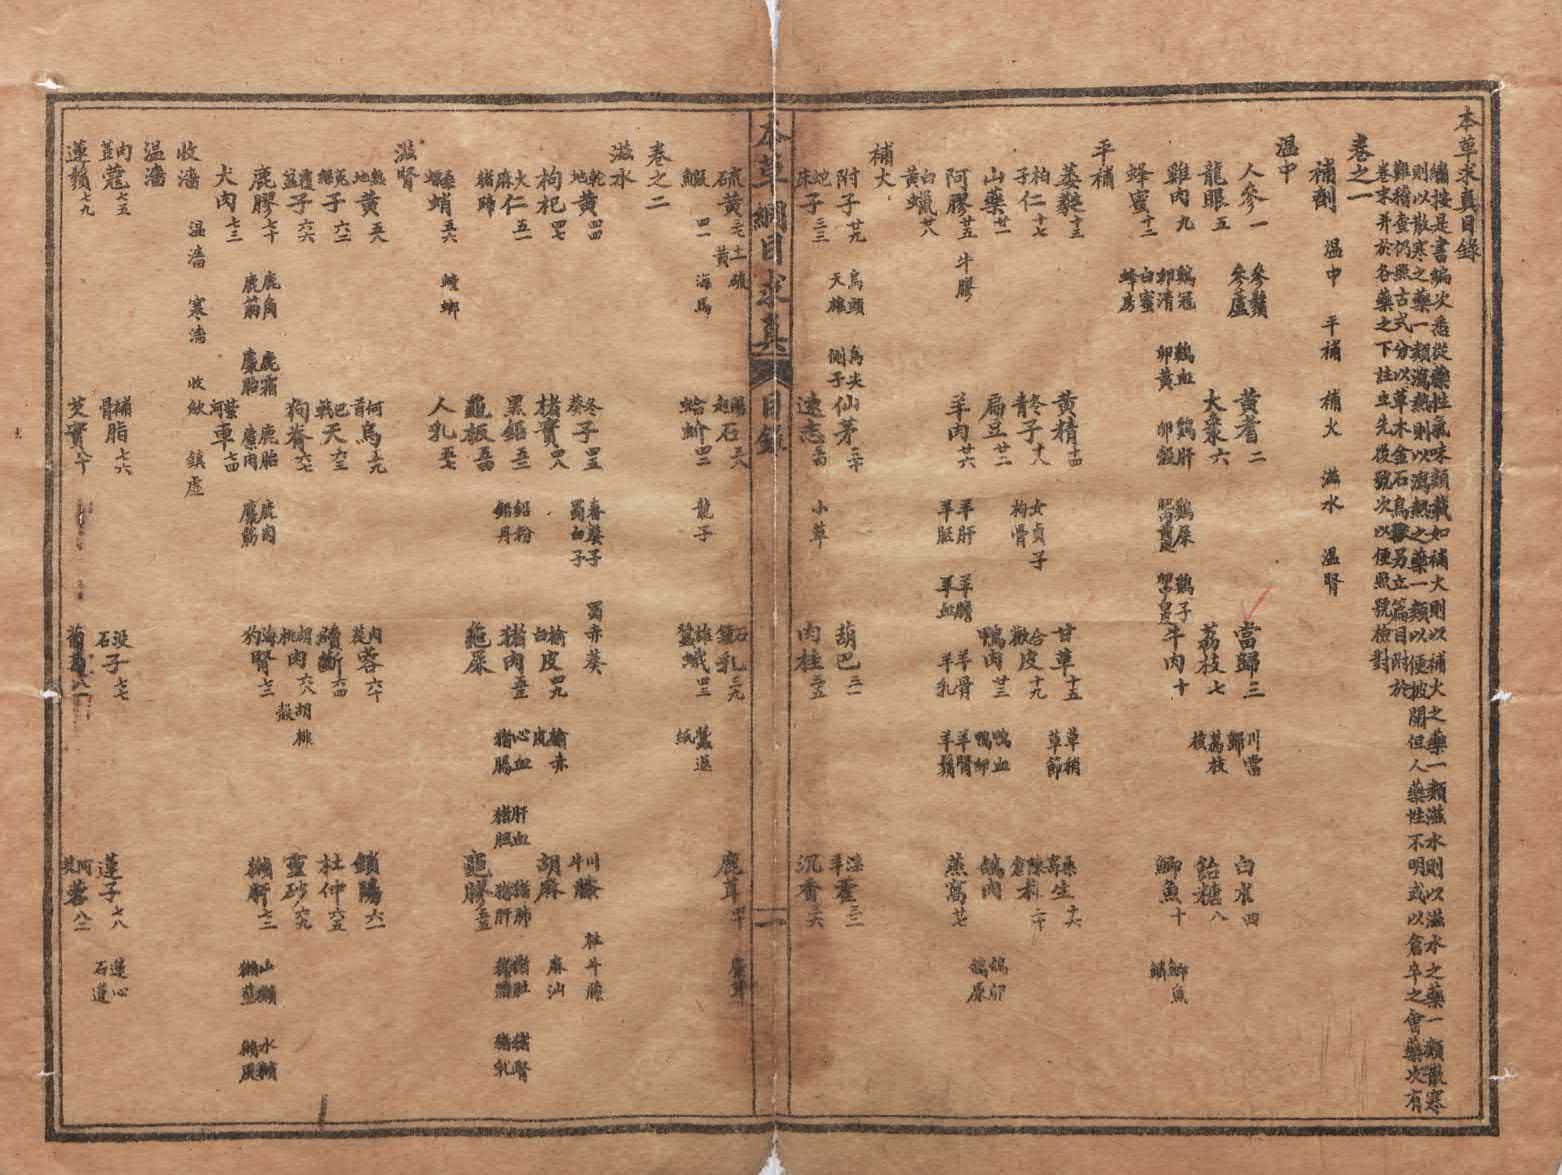 本草求真目錄
編按是書編次悉從藥性氣味類載如補火則以補火之藥一類滋水則以滋水之藥一類散寒
則以散寒之藥一類瀉熱則以瀉熱之藥一類以便披閱但人藥性不明或以倉卒之會藥次有
難稽查仍照古式分以草木金石鳥獸另立篇目附於
卷末并於各藥之下註立先後號次以便照號檢對
卷之一
補劑 溫中 平補 補火 滋水 溫腎
溫中
人參一 參鬚 參蘆 黃耆二 當歸三 川當歸 白朮四
龍眼五 大棗六 荔枝七 荔枝核 飴糖八
雞肉九 雞冠 雞血 雞肝 雞屎 雞子 卵清 卵黃 卵殼 牛肉十 鯽魚十 鯽魚鱗
蜂蜜十二 白蜜 蜂房
平補
萎蕤十三 黃精十四 甘草十五 草稍 草節 桑寄生十六
柏子仁十七 冬青子十八 女貞子 枸骨 合歡皮十九 陳倉米二十
山藥廿一 扁豆廿二 鴨肉廿三 鴨血 鴨卵 鴿肉 鴿卵 鴿屎
阿膠廿五 牛膠 羊肉廿六 羊肝 羊膽 羊骨 羊腎 羊胲 羊血 羊乳 羊鬚 燕窩廿七
白黃蠟廿八
補火
附子廿九 烏頭 烏尖 天雄 側子 仙茅三十 葫巴三一 淫羊藿三二
蛇床子三三 遠志三四 小草 肉桂三五 沉香三六
本草綱目求真 目錄 一
硫黃三七 土硫黃 陽起石三八 石鐘乳三九 鹿茸四十 麋茸
鰕四一 海馬 蛤蚧四二 龍子 雄蠶蛾四三 蠶退紙
卷之二
滋水
乾地黃四四 冬葵子四五 春葵子 蜀葵子 蜀赤葵 川牛膝 杜牛膝
枸杞四七 楮實四八 榆白皮四九 榆赤皮 胡麻 麻油
火麻仁五一 黑鉛五二 鉛粉 鉛丹 豬肉五三 心血 肝血 豬肺 豬肚 豬腎 豬腸 豬膽 豬肝 豬脬 豬乳
豬蹄 龜板五四 龜尿 龜膠五五
桑螵蛸五六 螳螂 人乳五七
滋腎
熟地黃五八 何首烏五九 肉蓯蓉六十 鎖陽六一
菟絲子六二 巴戟天六三 續斷六四 杜仲六五
覆盆子六六 狗脊六七 胡桃肉六八 胡桃殼 靈砂六九
鹿膠七十 鹿角 鹿霜 鹿胎 鹿肉 鹿筋 麋胎 麋肉 麋筋 海狗腎七一 獺肝七二 山獺 水獺
犬肉七三 紫河車七四
收濇 溫濇 寒濇 收歛 鎮虛
溫濇
肉荳蔻七五 補骨脂七六 沒石子七七 蓮子七八 蓮心 石蓮
蓮鬚七九 芡實八十 葡萄八一 阿芙蓉八二